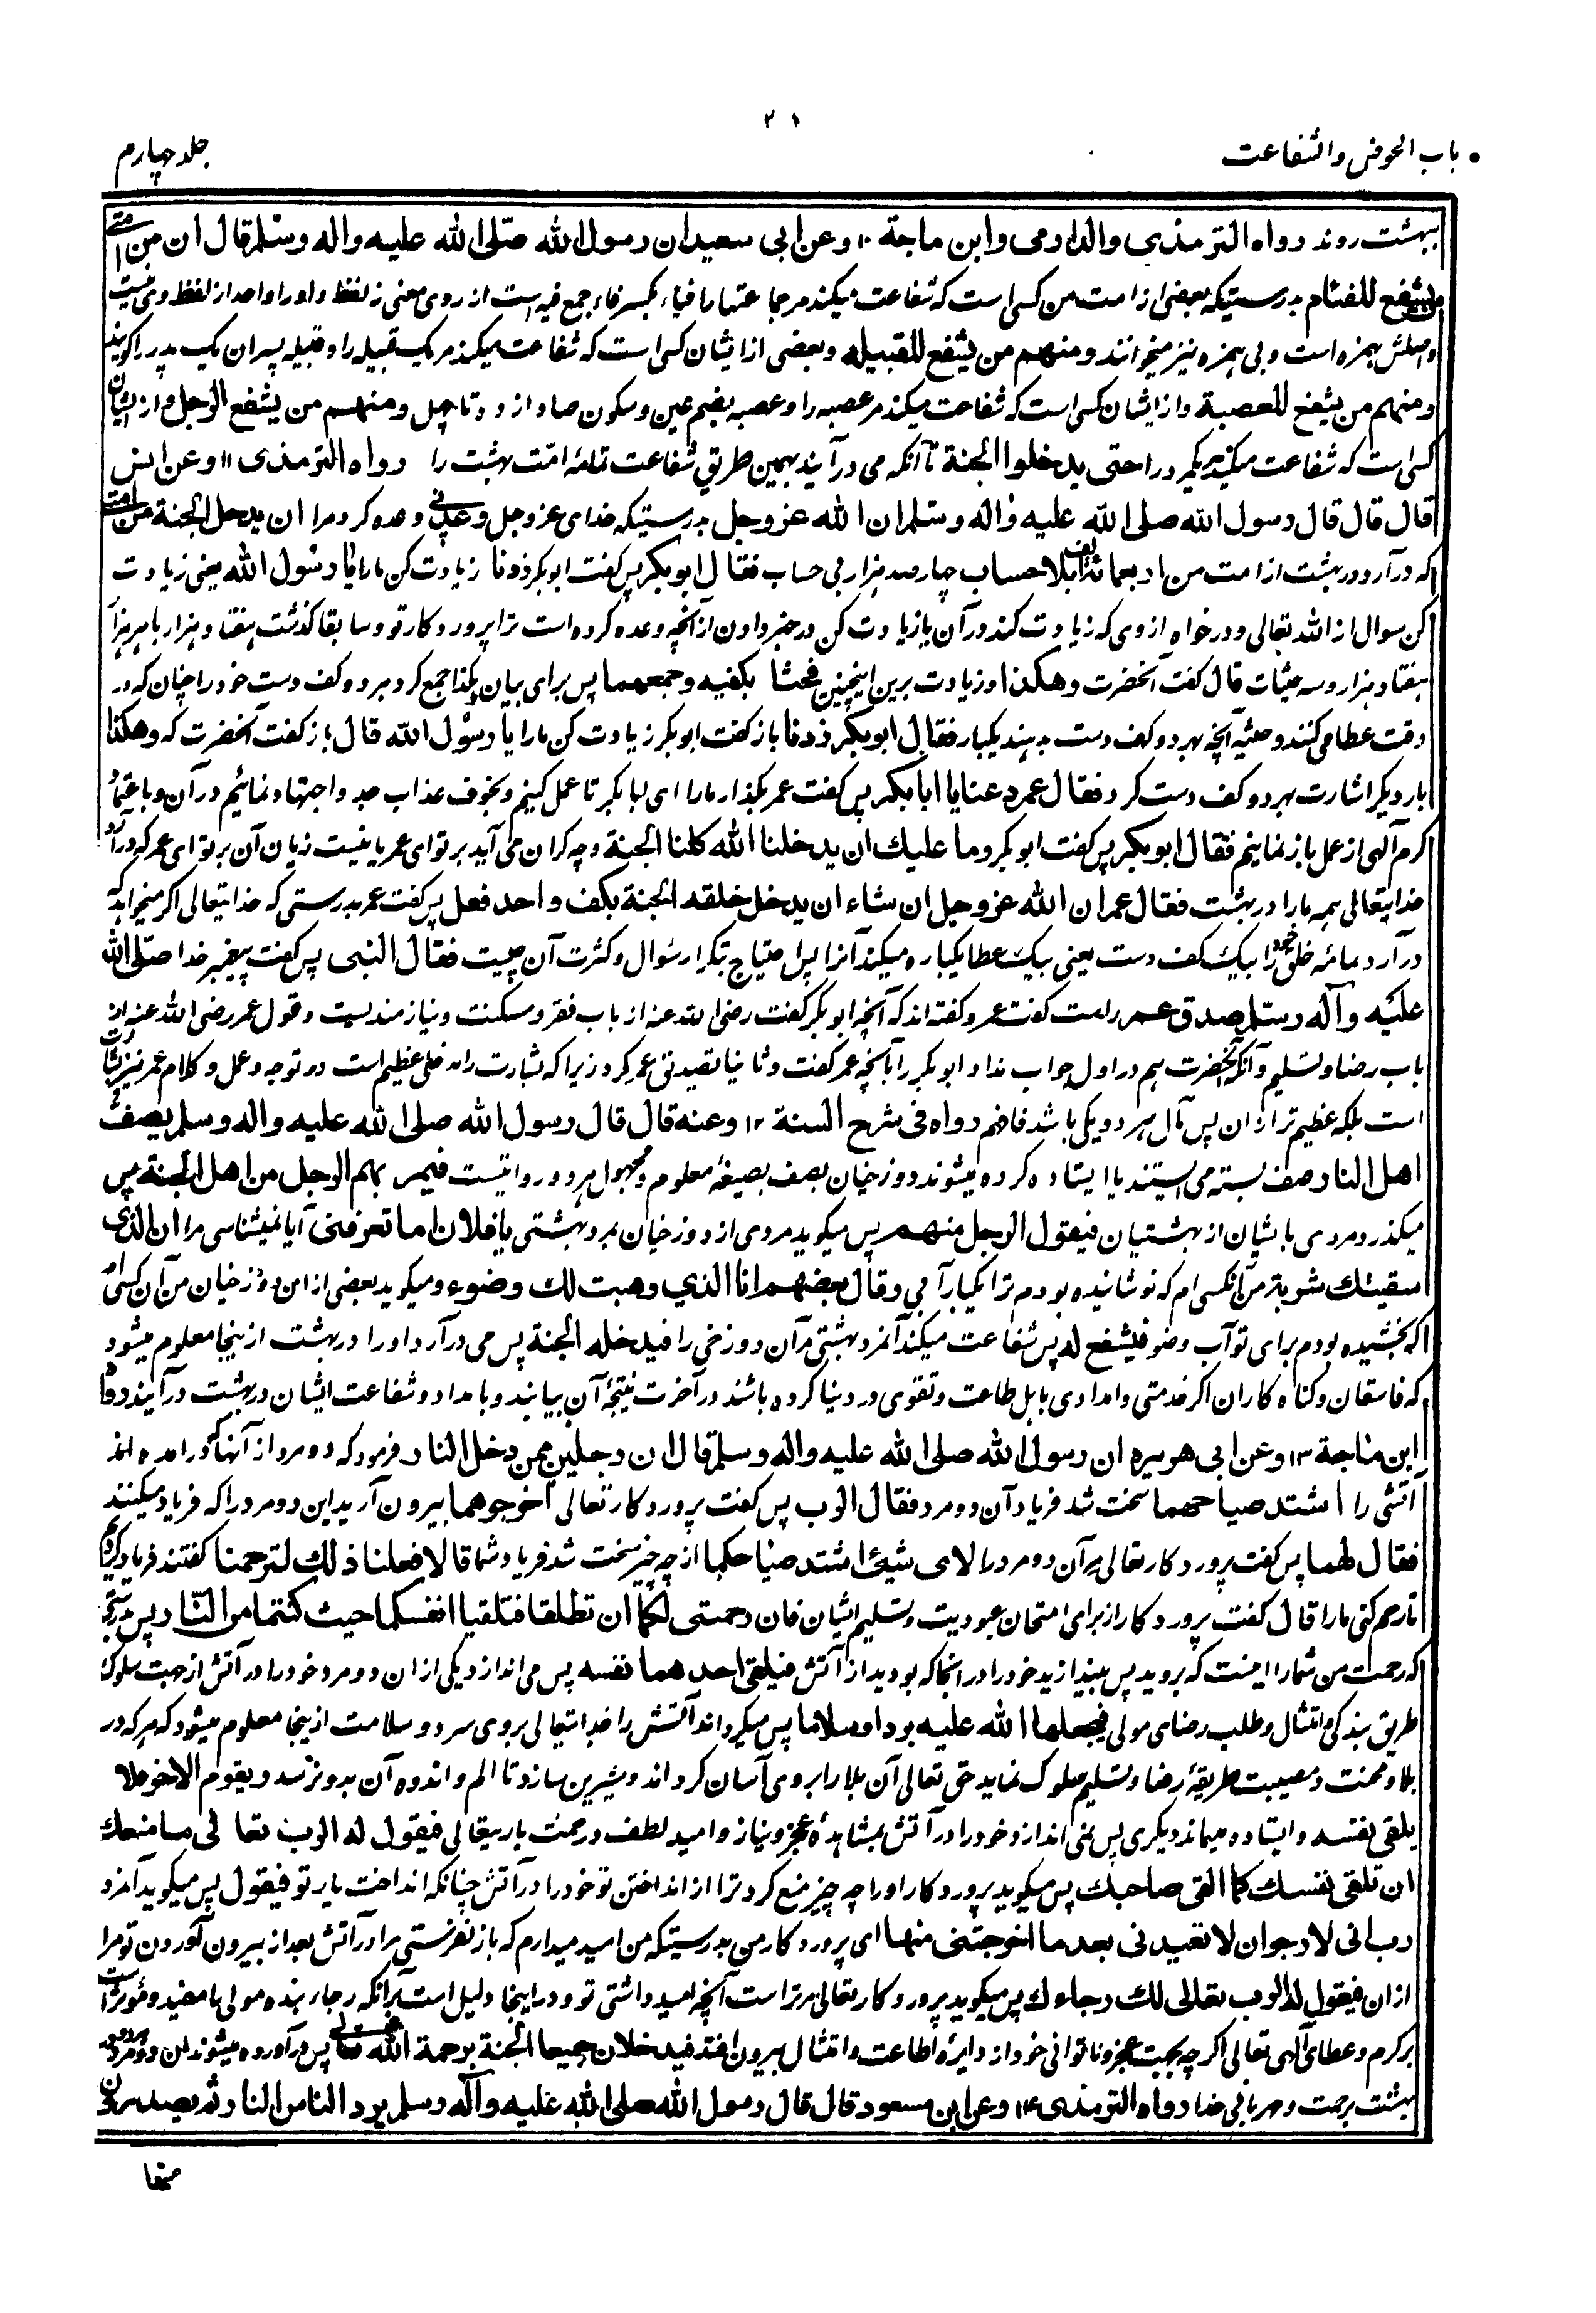 ۲۱
باب الحوض والشفاعت
جلد چهارم
ببهشت روند رواه الترمذی والدارمی وابن ماجة ۱۰ وعن ابی سعید ان رسول الله صلی الله علیه واله وسلم قال ان من امتی
من یشفع للفئام بدرستیکه بعضی از امت من کسی است که شفاعت میکند مر جماعتها را فیاء بکسر فاء جمع فیه است از روی معنی نه لفظ واورا واحد از لفظ وی نیست
واصلش بهمزه است وبی همزه نیز میخوانند ومنهم من یشفع للقبیله وبعضی از ایشان کسی است که شفاعت میکند مر یک قبیله را وقبیله پسران یک پدر را گویند
ومنهم من یشفع للعصبة واز ایشان کسی است که شفاعت میکند مر عصبه را وعصبه بضم عین وسکون صاد از ده تا چهل ومنهم من یشفع الرجل واز ایشان
کسی است که شفاعت میکند مر یکمرد را حتی یدخلوا الجنة تا آنکه می در آیند بهمین طریق شفاعت تمامه امت بهشت را رواه الترمذی ۱۱ وعن انس
قال قال قال رسول الله صلی الله علیه واله وسلم ان الله عزوجل بدرستیکه خدای عزوجل وعدنی وعده کرد مرا ان یدخل الجنة من امتی
که در آرد در بهشت از امت من اربعمائة الف بلا حساب چهارصد هزار بی حساب فقال ابوبکر پس گفت ابوبکر زدنا زیادت کن ما را یا رسول الله یعنی زیادت
کن سوال از الله تعالی ودرخواه از وی که زیادت کند در آن یا زیادت کن در خبر دادن از آنچه وعده کرده است ترا پروردگار تو وسابقا گذشت هفتاد هزار با هر هزار
هفتاد هزار وسه حثیات قال گفت آنحضرت وهکذا وزیادت برین اینچنین فحثا بکفیه وجمعهما پس برای بیان هکذا جمع کرد هر دو کف دست خود را چنان که در
وقت عطا می کنند وحثیه آنچه بهر دو کف دست بدهند یکبار فقال ابوبکر زدنا باز گفت ابوبکر زیادت کن ما را یا رسول الله قال باز گفت آنحضرت که وهکذا
بار دیگر اشارت بهر دو کف دست کرد فقال عمر دعنا یا ابابکر پس گفت عمر بگذار ما را ای ابا بکر تا عمل کنیم وبخوف عذاب جد واجتهاد نمائیم در آن وباعتماد
کرم آلهی از عمل باز نمانیم فقال ابوبکر پس گفت ابوبکر وما علیک ان یدخلنا الله کلنا الجنة وچه گران می آید بر تو ای عمر یا نیست زیان آن بر تو ای عمر که در آرد
خدایتعالی همه ما را در بهشت فقال عمر ان الله عزوجل ان شاء ان یدخل خلقه الجنة بکف واحد فعل پس گفت عمر بدرستی که خدایتعالی اگر میخواهد که
در آرد همه خلق خود را بیک کف دست یعنی بیک عطا یکباره میکند آنرا پس احتیاج بتکرار سوال وکثرت آن چیست فقال النبی پس گفت پیغمبر خدا صلی الله
علیه وآله وسلم صدق عمر راست گفت عمر وگفته اند که آنچه ابوبکر گفت رضی الله عنه از باب فقر ومسکنت ونیازمندیست وقول عمر رضی الله عنه از
باب رضا وتسلیم وآنکه آنحضرت هم در اول جواب نداد ابوبکر را بآنچه عمر گفت وثانیا تصدیق عمر کرد زیرا که بشارت را مدخلی عظیم است در توجه وعمل وکلام عمر نیز بشارت
است بلکه عظیم تر از ان پس مآل هر دو یکی باشد فافهم رواه فی شرح السنة ۱۲ وعنه قال قال رسول الله صلی الله علیه واله وسلم یصف
اهل النار صف بسته می ایستند یا ایستاده کرده میشوند دوزخیان یصف بصیغهٔ معلوم ومجهول هر دو روایتیست فیمر بهم الرجل من اهل الجنة پس
میگذرد مردی بایشان از بهشتیان فیقول الرجل منهم پس میگوید مردی از دوزخیان بمرد بهشتی یا فلان اما تعرفنی آیا نمیشناسی مرا ان الذی
سقیتک شربة من آنکسی ام که نوشانیده بودم ترا یکبار آبی وقال بعضهم انا الذی وهبت لک وضوء ومیگوید بعضی از این دوزخیان من آن کسی ام
که بخشیده بودم برای تو آب وضو فیشفع له پس شفاعت میکند آنمرد بهشتی مر آن دوزخی را فیدخله الجنة پس می در آرد او را در بهشت ازینجا معلوم میشود
که فاسقان وگناه کاران اگر خدمتی وامدادی باهل طاعت وتقوی در دنیا کرده باشند در آخرت نتیجهٔ آن بیابند وبامداد وشفاعت ایشان در بهشت در آیند رواه
ابن ماجة ۱۳ وعن ابی هریره ان رسول الله صلی الله علیه واله وسلم قال ان رجلین ممن دخل النار فرمود که دو مرد از آنها که در آمده اند
آتش را اشتد صیاحهما سخت شد فریاد آن دو مرد فقال الرب پس گفت پروردگار تعالی اخرجوهما بیرون آرید این دو مرد را که فریاد میکنند
فقال لهما پس گفت پروردگار تعالی مر آن دو مرد را لای شیئ اشتد صیاحکما از چه چیز سخت شد فریاد شما قالا فعلنا ذلک لترحمنا گفتند فریاد کردیم
تا رحم کنی ما را قال گفت پروردگار از برای امتحان عبودیت وتسلیم ایشان فان رحمتی لکما ان تنطلقا فتلقیا انفسکما حیث کنتما من النار پس بدرستی
که رحمت من شما را اینست که بروید پس بیندازید خود را در آنجا که بودید از آتش فیلقی احدهما نفسه پس می اندازد یکی از ان دو مرد خود را در آتش از جهت سلوک
طریق بندگی وامتثال وطلب رضای مولی فیجعلها الله علیه بردا وسلاما پس میگرداند آتش را خدایتعالی بر وی سرد وسلامت ازینجا معلوم میشود که هر که در
بلا ومحنت ومصیبت طریقهٔ رضا وتسلیم سلوک نماید حق تعالی آن بلا را بر وی آسان گرداند وشیرین سازد تا الم واندوه آن بدو نرسد ویقوم الاخر فلا
یلقی نفسه وایستاده میماند دیگری پس نمی اندازد خود را در آتش بمشاهدهٔ عجز ونیاز وامید لطف ورحمت باریتعالی فیقول له الرب تعالی ما منعک
ان تلقی نفسک کما القی صاحبک پس میگوید پروردگار او را چه چیز منع کرد ترا از انداختن تو خود را در آتش چنانکه انداخت یار تو فیقول پس میگوید آنمرد
رب انی لارجو ان لا تعیدنی بعد ما اخرجتنی منها ای پروردگار من بدرستیکه من امید میدارم که باز نفرستی مرا در آتش بعد از بیرون آوردن تو مرا
از ان فیقول له الرب تعالی لک رجاءک پس میگوید پروردگار تعالی مر تراست آنچه امید داشتی تو ودر اینجا دلیل است بر آنکه رجاء بنده مولی را مفید ومؤثر است
بر کرم وعطای آلهی تعالی اگر چه بجهت عجز وناتوانی خود از دایرهٔ اطاعت وامتثال بیرون افتد فیدخلان جمیعا الجنة برحمة الله تعالی پس در آورده میشوند ان دو مرد در
بهشت برحمت ومهربانی خدا رواه الترمذی ۱۴ وعن ابن مسعود قال قال رسول الله صلی الله علیه وآله وسلم یرد الناس النار ثم یصدرون
منها